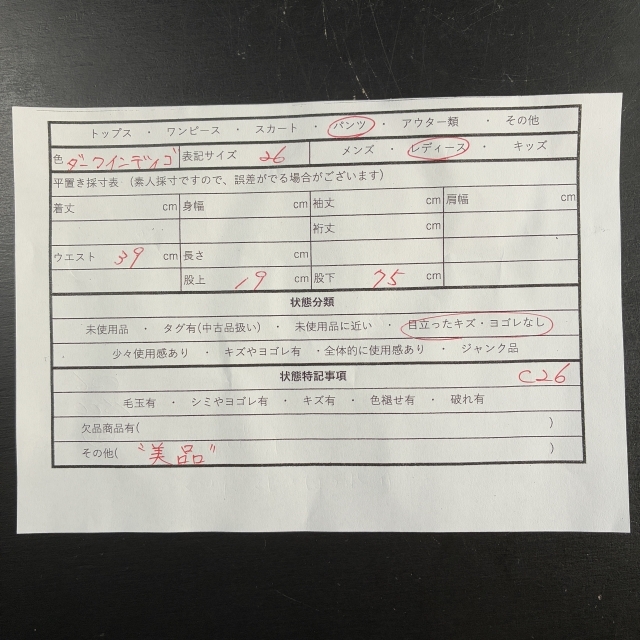 トップス ・ ワンピース ・ スカート ・ パンツ ・ アウター類 ・ その他
色 ダークインディゴ 表記サイズ 26 メンズ ・ レディース ・ キッズ
平置き採寸表 (素人採寸ですので、誤差がでる場合がございます)
着丈 cm 身幅 cm 袖丈 cm 肩幅 cm
裄丈 cm
ウエスト 39 cm 長さ cm
股上 19 cm 股下 75 cm
状態分類
未使用品 ・ タグ有(中古品扱い) ・ 未使用品に近い ・ 目立ったキズ・ヨゴレなし
少々使用感あり ・ キズやヨゴレ有 ・全体的に使用感あり ・ ジャンク品
状態特記事項 C26
毛玉有 ・ シミやヨゴレ有 ・ キズ有 ・ 色褪せ有 ・ 破れ有
欠品商品有( )
その他( "美品" )